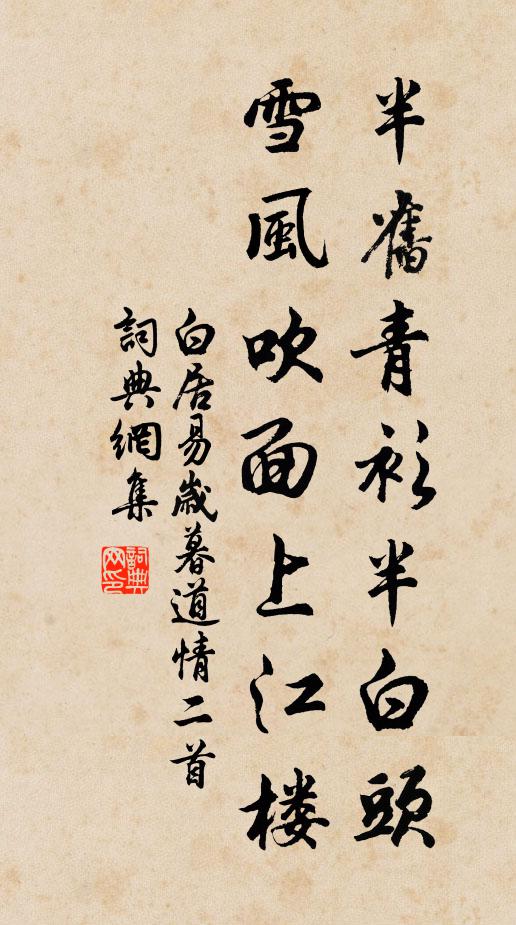 半舊青衫半白頭
雪風吹面上江楼
白居易歲暮道情二首
詞典網集
詞典网印